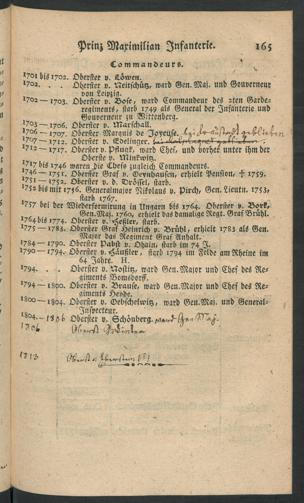 Prinz Maximilian Infanterie. 165
Commandeurs.
1701 bis 1702. Oberster v. Löwen.
1702. . . Oberster v. Neitschütz, ward Gen. Maj. und Gouverneur
von Leipzig.
1702 — 1703. Oberster v. Bose, ward Commandeur des 2ten Garde-
regiments, starb 1749 als General der Infanterie und
Gouverneur zu Wittenberg.
1703 — 1706. Oberster v. Marschall.
1706 — 1707. Oberster Marquis de Joyeuse, bei
1707 — 1712. Oberster v. Edelinger,
1712 — 1717. Oberster v. Pflugk, ward Chef, und vorher unter ihm der
Oberste v. Minkwitz.
1717 bis 1746 waren die Chefs zugleich Commandeurs.
1746 — 1751. Oberster Graf v. Oeynhausen, erhielt Pension, † 1759.
1751 — 1752. Oberster v. d. Drössel, starb.
1752 bis mit 1756. Generalmajor Nikolaus v. Pirch, Gen. Lieutn. 1753,
starb 1767.
1757 bei der Wiederformirung in Ungarn bis 1764. Oberster v. Bork,
Gen. Maj. 1760, erhielt das damalige Regt. Graf Brühl.
1764 bis 1774. Oberster v. Keßler, starb.
1775 — 1783. Oberster Graf Heinrich v. Brühl, erhielt 1783 als Gen.
Major das Regiment Graf Anhalt.
1784 — 1790. Oberster Pabst v. Ohain, starb im 74 J.
1790 — 1794. Oberster v. Häußler, starb 1794 im Felde am Rheine im
64 Jahre. H.
1794. . . Oberster v. Nostitz, ward Gen. Major und Chef des Re-
giments Bomsdorff.
1794 — 1800. Oberster v. Brause, ward Gen. Major und Chef des Re-
giments Heyde.
1800 — 1804. Oberster v. Oebschelwitz, ward Gen. Maj. und General-
Inspecteur.
1804. — 1806 Oberster v. Schönberg. ward Gen Maj.
1806 Oberst
1813 Oberst v.